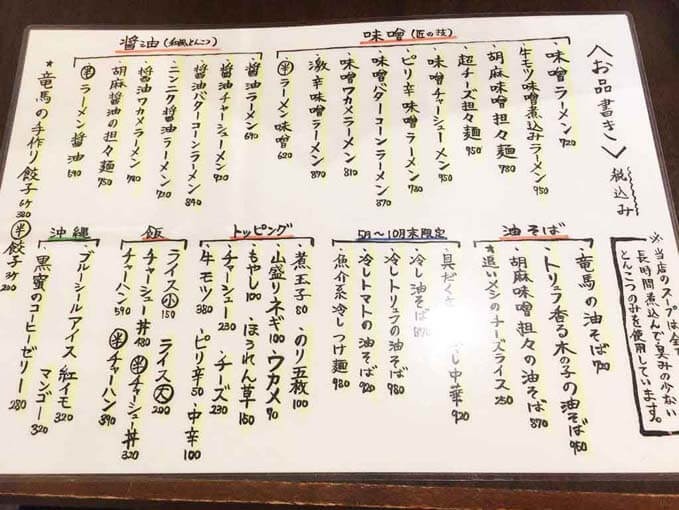 〈お品書き〉 税込み
味噌（匠の技）
味噌ラーメン 720
牛モツ味噌煮込みラーメン 950
胡麻味噌担々麺 780
超チーズ担々麺 950
味噌チャーシューメン 950
ピリ辛味噌ラーメン 780
味噌バターコーンラーメン 870
味噌ワカメラーメン 810
激辛味噌ラーメン 870
半ラーメン味噌 620
醤油
醤油ラーメン 690
醤油チャーシューメン
醤油バターコーンラーメン 840
ニンニク醤油ラーメン
醤油ワカメラーメン 780
胡麻醤油の担々麺 750
半ラーメン醤油 590
★竜馬の手作り餃子 6ケ 320 半餃子 3ケ 200
※当店のスープは全て
長時間煮込んで臭みの少ない
とんこつのみを使用しています。
油そば
竜馬の油そば 720
トリュフ香る木の子の油そば 950
胡麻味噌担々の油そば 870
★追いメンのチーズライス 250
5月〜10月末限定
具だく 中華 920
冷し油そば 870
冷しトリュフの油そば 980
冷しトマトの油そば 920
魚介系冷しつけ麺 980
トッピング
煮玉子 80 のり五枚 100
山盛りネギ 100 ワカメ 90
もやし 100 ほうれん草 150
チャーシュー 230 チーズ 230
牛モツ 380 ピリ辛 50 中辛 100
飯
ライス小 150 ライス大 200
チャーシュー丼 480 半チャーシュー丼 320
チャーハン 590 半チャーハン 390
沖縄
ブルーシールアイス 紅イモ 320 マンゴー 320
黒蜜のコーヒーゼリー 280